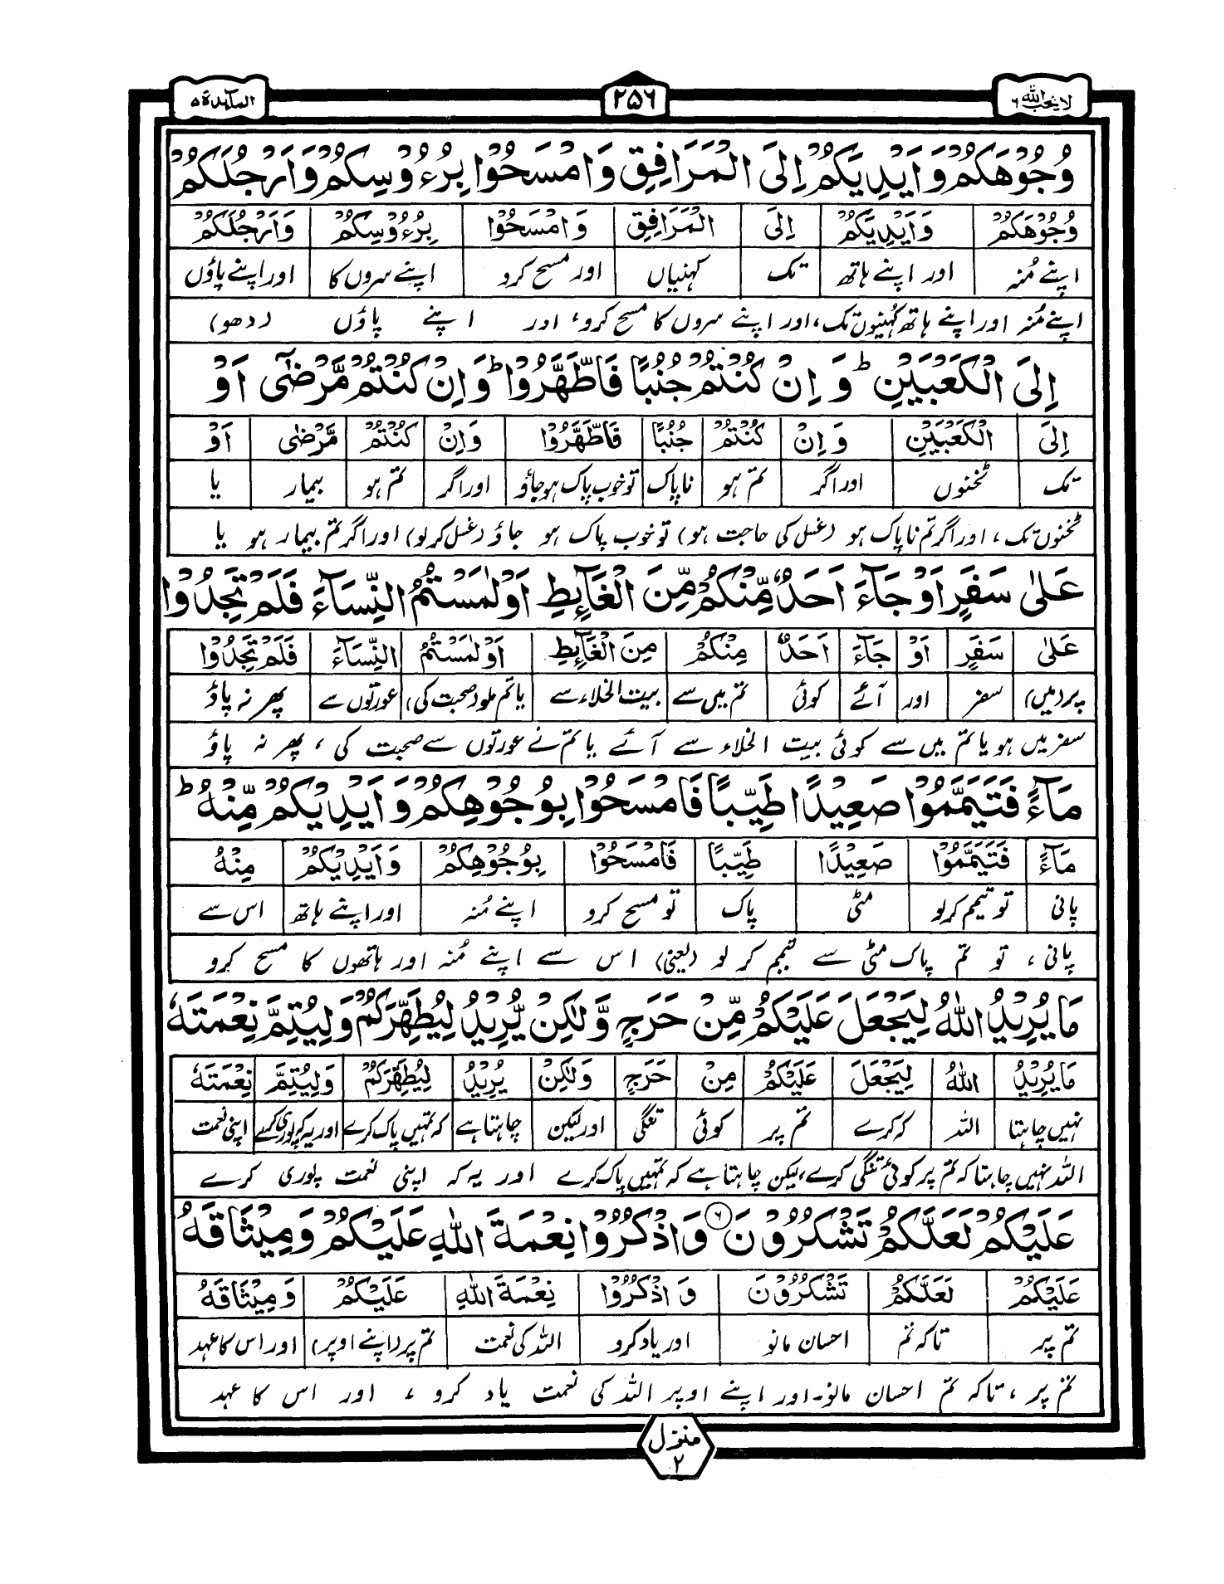 لا یحب اللہ ۶ ۲۵۶ المآئدۃ ۵
وُجُوْهَكُمْ وَاَيْدِيَكُمْ اِلَى الْمَرَافِقِ وَامْسَحُوْا بِرُءُوْسِكُمْ وَاَرْجُلَكُمْ
وُجُوْهَكُمْ وَاَيْدِيَكُمْ اِلَى الْمَرَافِقِ وَامْسَحُوْا بِرُءُوْسِكُمْ وَاَرْجُلَكُمْ
اپنے مُنہ اور اپنے ہاتھ تک کہنیاں اور مسح کرو اپنے سروں کا اور اپنے پاؤں
اپنے مُنہ اور اپنے ہاتھ کُہنیوں تک، اور اپنے سروں کا مسح کرو، اور اپنے پاؤں (دھو)
اِلَى الْكَعْبَيْنِ ؕ وَاِنْ كُنْتُمْ جُنُبًا فَاطَّهَّرُوْا ؕ وَاِنْ كُنْتُمْ مَّرْضٰٓى اَوْ
اِلَى الْكَعْبَيْنِ وَاِنْ كُنْتُمْ جُنُبًا فَاطَّهَّرُوْا وَاِنْ كُنْتُمْ مَّرْضٰى اَوْ
تک ٹخنوں اور اگر تم ہو ناپاک تو خوب پاک ہو جاؤ اور اگر تم ہو بیمار یا
ٹخنوں تک، اور اگر تم ناپاک ہو (غسل کی حاجت ہو) تو خوب پاک ہو جاؤ (غسل کر لو) اور اگر تم بیمار ہو یا
عَلٰى سَفَرٍ اَوْ جَآءَ اَحَدٌ مِّنْكُمْ مِّنَ الْغَآئِطِ اَوْ لٰمَسْتُمُ النِّسَآءَ فَلَمْ تَجِدُوْا
عَلٰى سَفَرٍ اَوْ جَآءَ اَحَدٌ مِنْكُمْ مِنَ الْغَآئِطِ اَوْ لٰمَسْتُمُ النِّسَآءَ فَلَمْ تَجِدُوْا
پر (میں) سفر اور آئے کوئی تم میں سے بیت الخلاء سے یا تم ملو (صحبت کی) عورتوں سے پھر نہ پاؤ
سفر میں ہو یا تم میں سے کوئی بیت الخلاء سے آئے یا تم نے عورتوں سے صحبت کی، پھر نہ پاؤ
مَآءً فَتَيَمَّمُوْا صَعِيْدًا طَيِّبًا فَامْسَحُوْا بِوُجُوْهِكُمْ وَاَيْدِيْكُمْ مِّنْهُ ؕ
مَآءً فَتَيَمَّمُوْا صَعِيْدًا طَيِّبًا فَامْسَحُوْا بِوُجُوْهِكُمْ وَاَيْدِيْكُمْ مِنْهُ
پانی تو تیمم کر لو مٹی پاک تو مسح کرو اپنے مُنہ اور اپنے ہاتھ اس سے
پانی، تو تم پاک مٹی سے تیمم کر لو (یعنی) اس سے اپنے مُنہ اور ہاتھوں کا مسح کرو
مَا يُرِيْدُ اللّٰهُ لِيَجْعَلَ عَلَيْكُمْ مِّنْ حَرَجٍ وَّلٰكِنْ يُّرِيْدُ لِيُطَهِّرَكُمْ وَلِيُتِمَّ نِعْمَتَهٗ
مَا يُرِيْدُ اللّٰهُ لِيَجْعَلَ عَلَيْكُمْ مِنْ حَرَجٍ وَلٰكِنْ يُرِيْدُ لِيُطَهِّرَكُمْ وَلِيُتِمَّ نِعْمَتَهٗ
نہیں چاہتا اللہ کہ کرے تم پر کوئی تنگی اور لیکن چاہتا ہے کہ تمہیں پاک کرے اور یہ کہ پوری کرے اپنی نعمت
اللہ نہیں چاہتا کہ تم پر کوئی تنگی کرے، لیکن چاہتا ہے کہ تمہیں پاک کرے اور یہ کہ اپنی نعمت پوری کرے
عَلَيْكُمْ لَعَلَّكُمْ تَشْكُرُوْنَ ۶ وَاذْكُرُوْا نِعْمَةَ اللّٰهِ عَلَيْكُمْ وَمِيْثَاقَهُ
عَلَيْكُمْ لَعَلَّكُمْ تَشْكُرُوْنَ وَاذْكُرُوْا نِعْمَةَ اللّٰهِ عَلَيْكُمْ وَمِيْثَاقَهُ
تم پر تاکہ تم احسان مانو اور یاد کرو اللہ کی نعمت تم پر (اپنے اوپر) اور اس کا عہد
تم پر، تاکہ تم احسان مانو۔ اور اپنے اوپر اللہ کی نعمت یاد کرو، اور اس کا عہد
منزل ۲